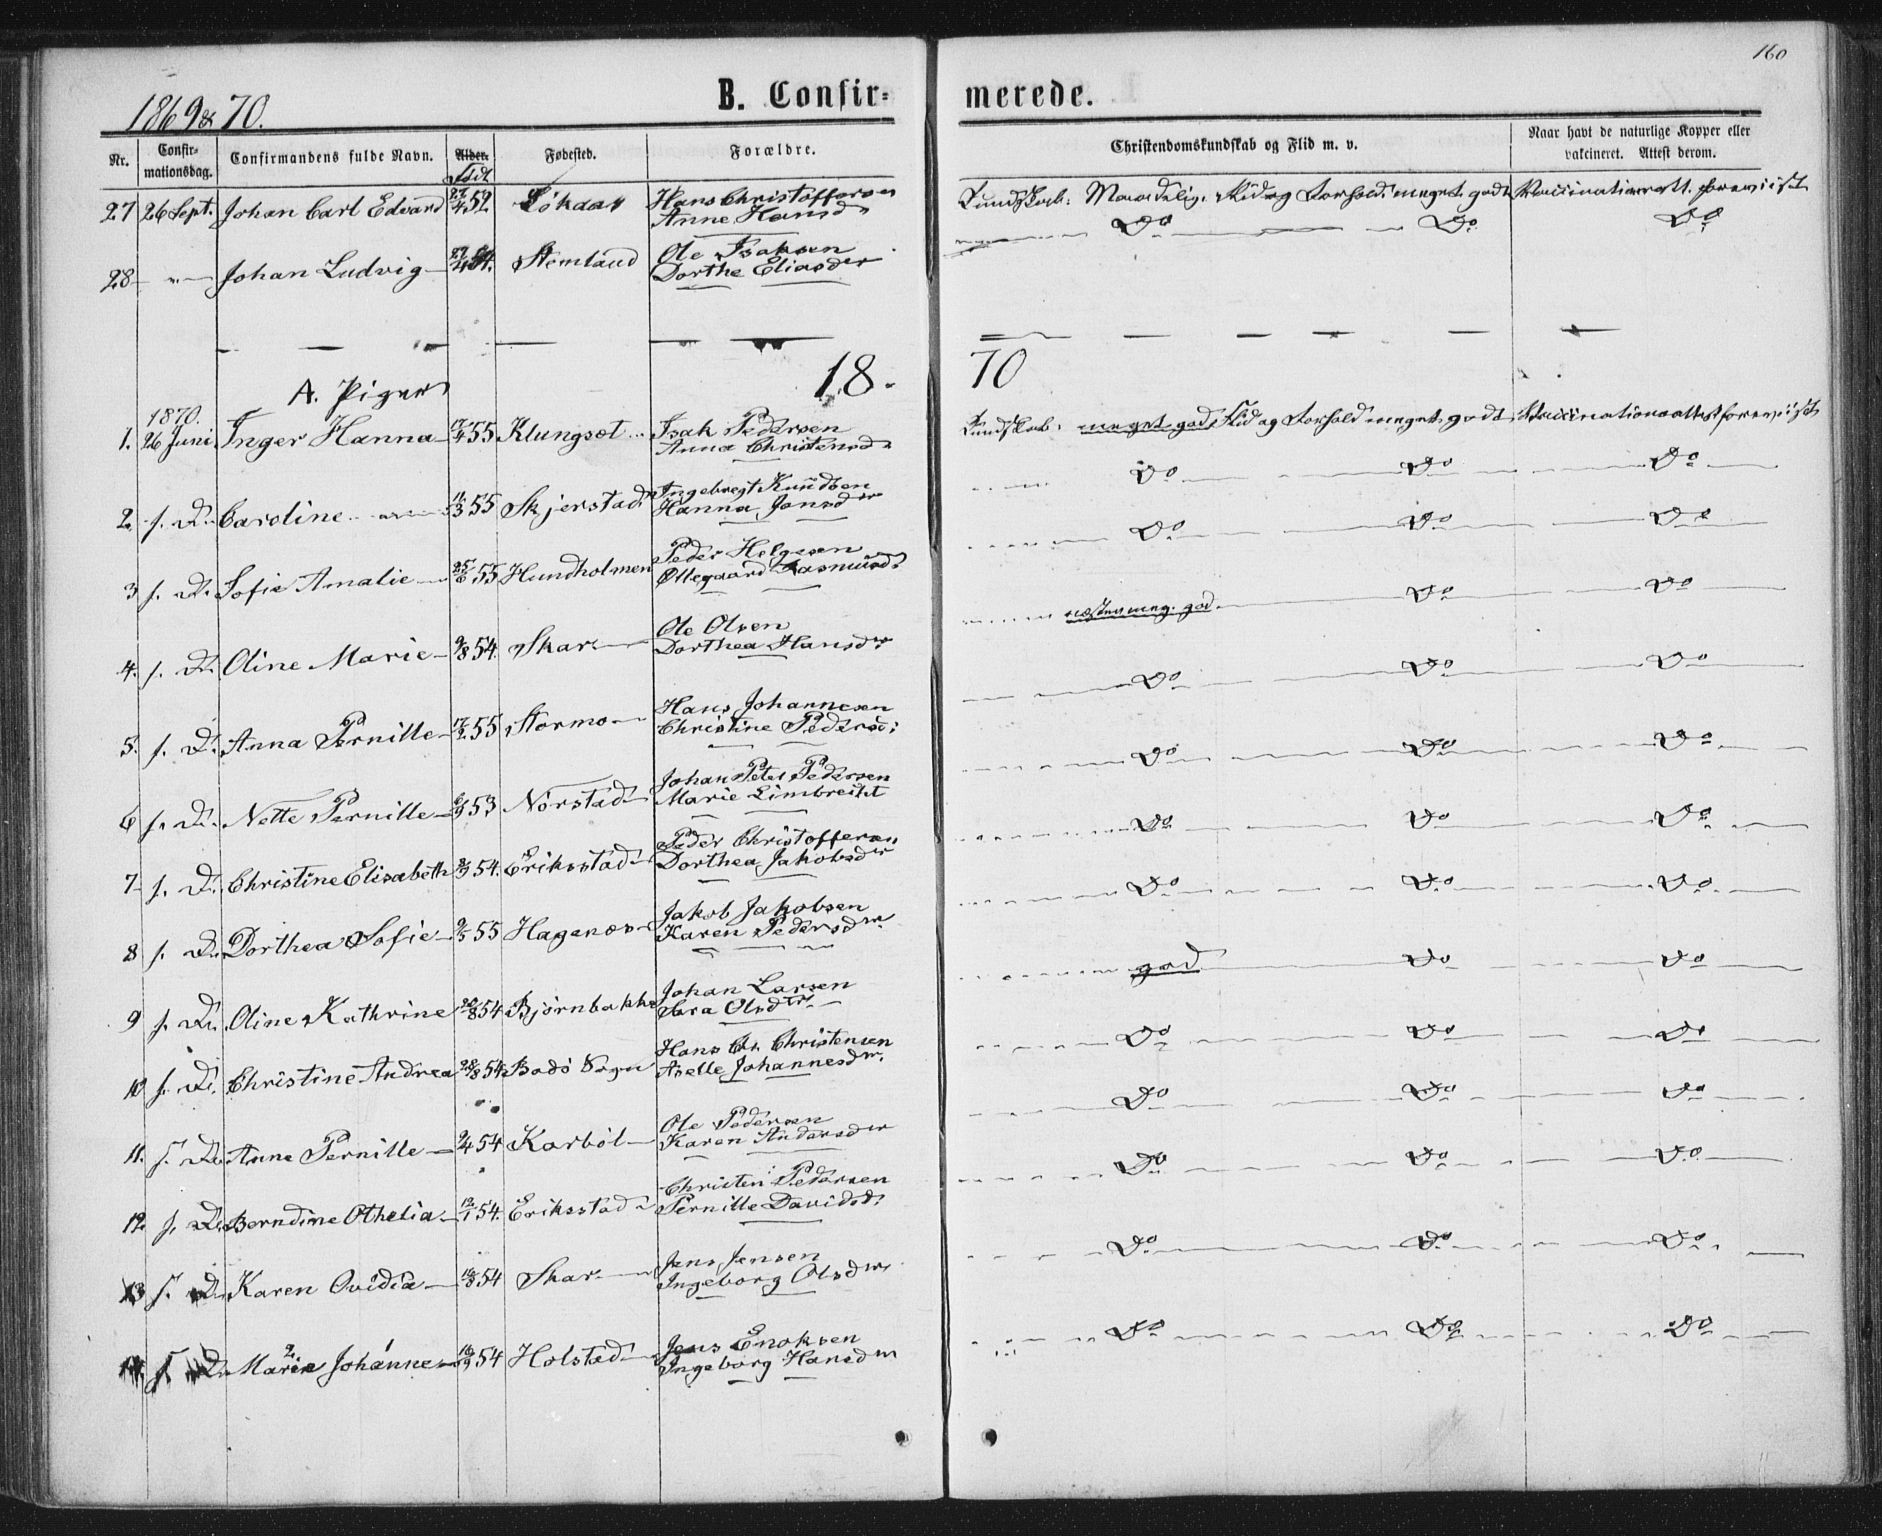 160
1869 & 70.
B. Confirmerede.
Nr. Confirmationsdag. Confirmandens fulde Navn. Alder. Fødested. Forældre. Christendomskundskab og Flid m. v. Naar havt de naturlige Kopper eller vakcineret. Attest derom.
Født
27 26 Sept. Johan Carl Edvard 52 Løkaas Hans Christoffersen Kundskab: Maadelig. Flid og Forhold: meget godt Vaccinationsatt. foreviist
Anne Hansd. Do Do Do
28 — Johan Ludvig 54. Stemland Ole Isaksen
Dorthe Eliasdr
1870
A. Piger
1870.
1. 26 Juni Inger Hanna 17/4 55 Klungset Isak Pedersen Kundskab: meget god, Flid og Forhold meget godt, Vaccinationsattest forevist
Anna Christensd.
2. f. D. Caroline 11/3 55 Skjerstad Ingebregt Knudsen Do Do Do
Hanna Jonsdr
3 f. D. Sofie Amalie 25/6 55 Hundholmen Peder Helgesen Do Do Do
Ollegaard Rasmusd.
4. f. D. Oline Marie 9/8 54. Skar Ole Olsen næsten meg. god. Do Do
Dorthea Hansdr
5. f. D. Anna Pernille 17/2 55 Stormo Hans Johannesen Do Do Do
Christine Pedersd:
6 f. D. Nette Pernille 53 Norstad Johan Peter Pedersen Do Do Do
Marie Limbreckt
7 f. D. Christine Elisabeth 54. Eriksstad Peder Christoffersen Do Do Do
Dorthea Jakobsdr
8 f. D. Dorthea Sofie 9/5 55 Hagenæs Jakob Jakobsen Do Do Do
Karen Pedersdr.
9 f. D. Oline Kathrine 20/8 54 Bjørnbakke Johan Larsen god Do Do
Sara Olsdr.
10 f. D. Christine Andrea 28/8 54 Bodø Sogn Hans Chr. Christensen Do Do Do
Axelle Johannesdr.
11. f. D. Anne Pernille 9/4 54 Karbøl Ole Pedersen Do Do Do
Karen Andersdr
12. f. D. Berndine Othelia 12/1 54. Eriksstad Christen Pedersen Do Do Do
Pernille Davidsd.
13 f. D. Karen Ovidia 16/8 54 Skar Jens Jensen Do Do Do
Ingeborg Olsdr.
14 f. D. Marie Johanne 16/9 54 Holstad Jens Enoksen Do Do Do
Ingeborg Hansdr